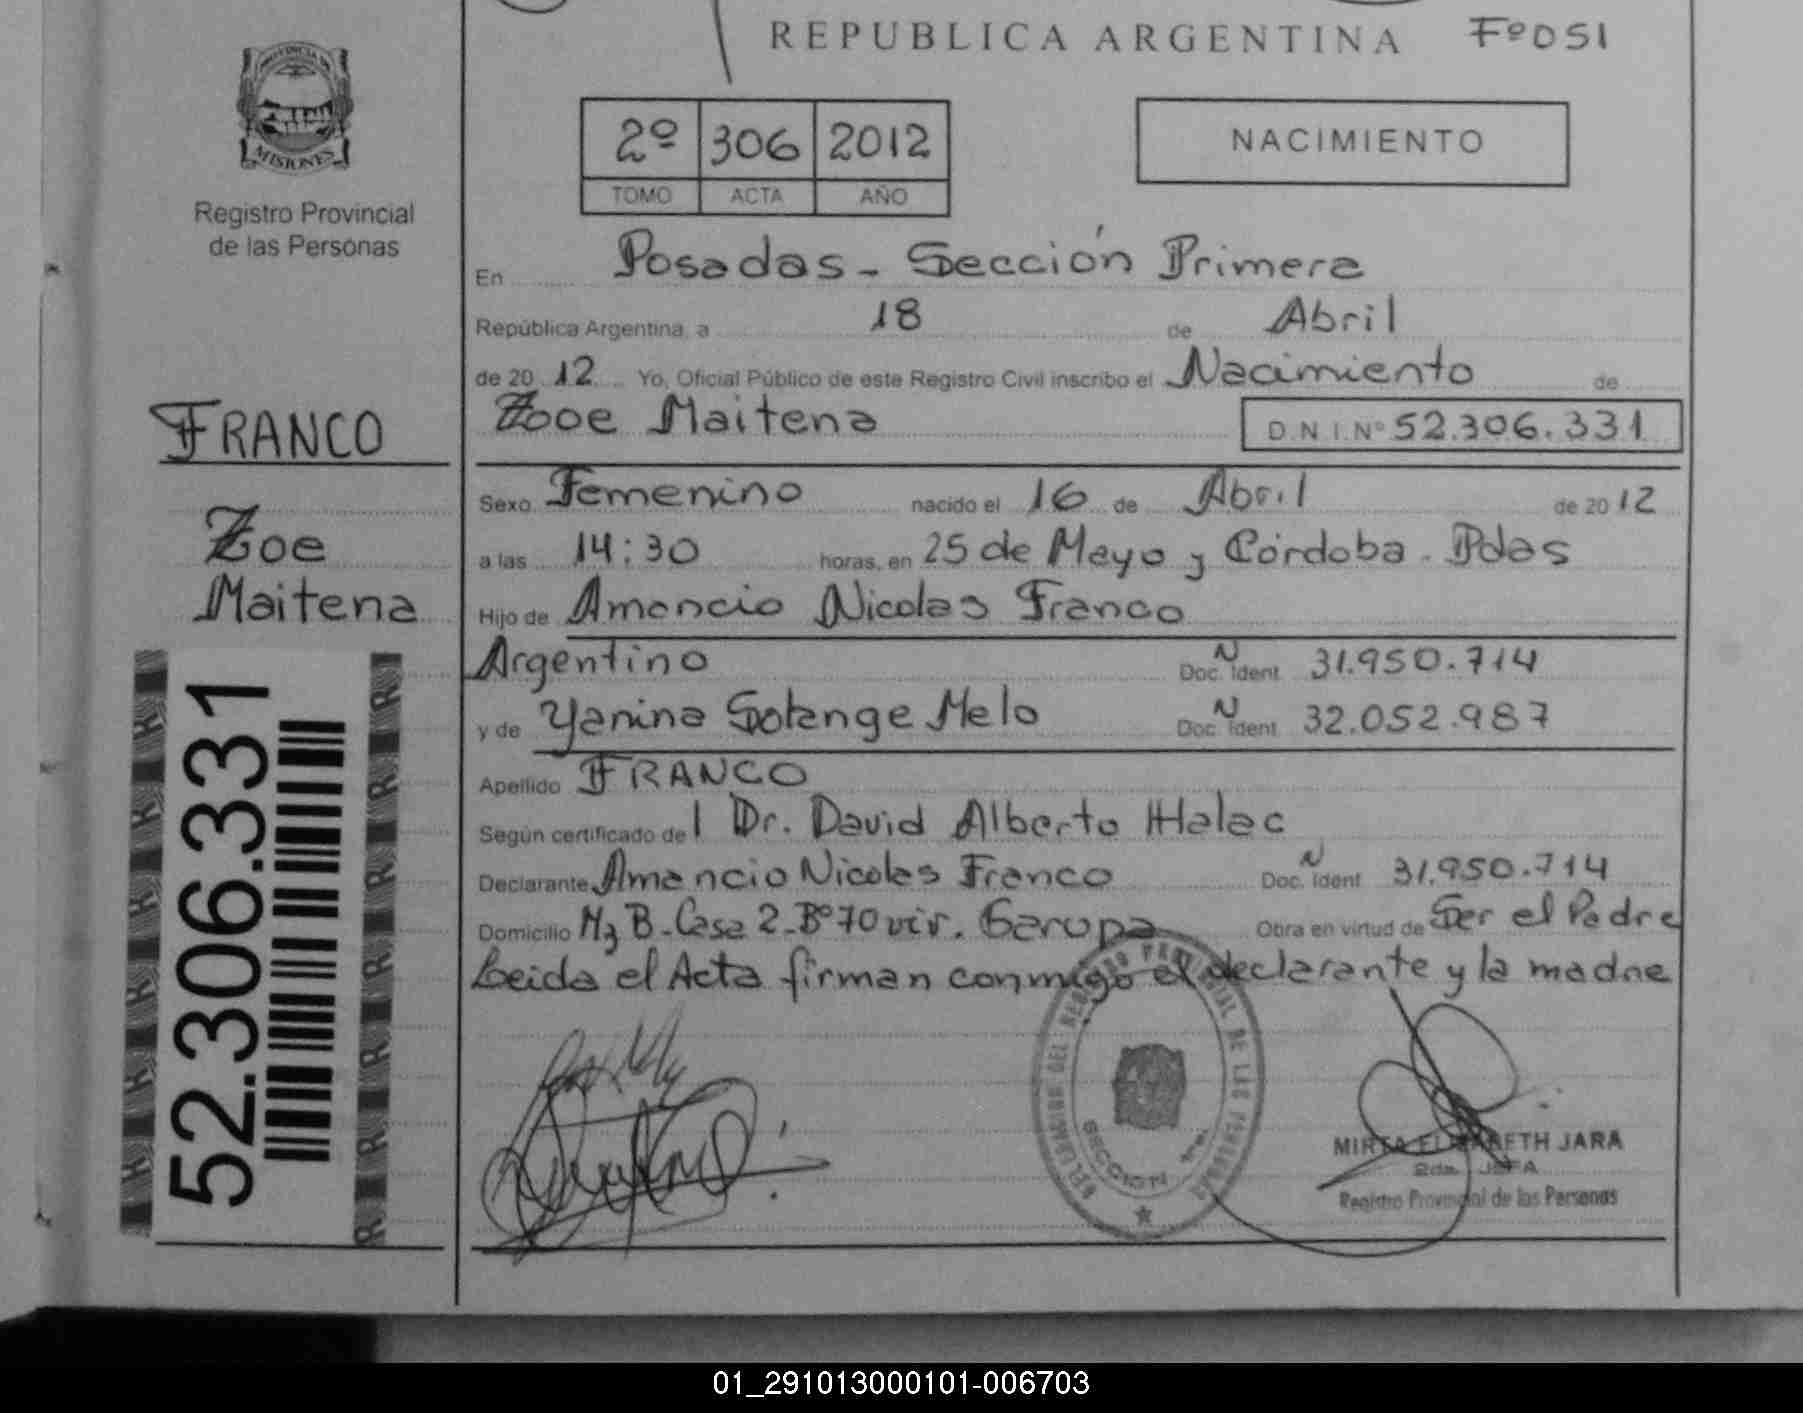 REPUBLICA ARGENTINA Fº051
PROVINCIA DE
MISIONES
Registro Provincial
de las Personas
2º 306 2012
TOMO ACTA AÑO
NACIMIENTO
En Posadas - Sección Primera
República Argentina, a 18 de Abril
de 20 12 Yo, Oficial Público de este Registro Civil inscribo el Nacimiento de
Zooe Maitena D.N.I.Nº 52.306.331
FRANCO
Zoe
Maitena
52.306.331
Sexo Femenino nacido el 16 de Abril de 20 12
a las 14:30 horas, en 25 de Mayo y Córdoba - Pdas
Hijo de Amancio Nicolas Franco
Argentino N Doc. Ident 31.950.714
y de Yanina Solange Melo N Doc. Ident 32.052.987
Apellido FRANCO
Según certificado de l Dr. David Alberto Halac
Declarante Amancio Nicolas Franco N Doc. Ident 31.950.714
Domicilio Mz B - Casa 2 - Bº 70 viv. Garupa Obra en virtud de Ser el Padre
Leida el Acta firman conmigo el declarante y la madre
SECCION 1ra.
MIRTA ELIZABETH JARA
2da. JEFA
Registro Provincial de las Personas
01_291013000101-006703